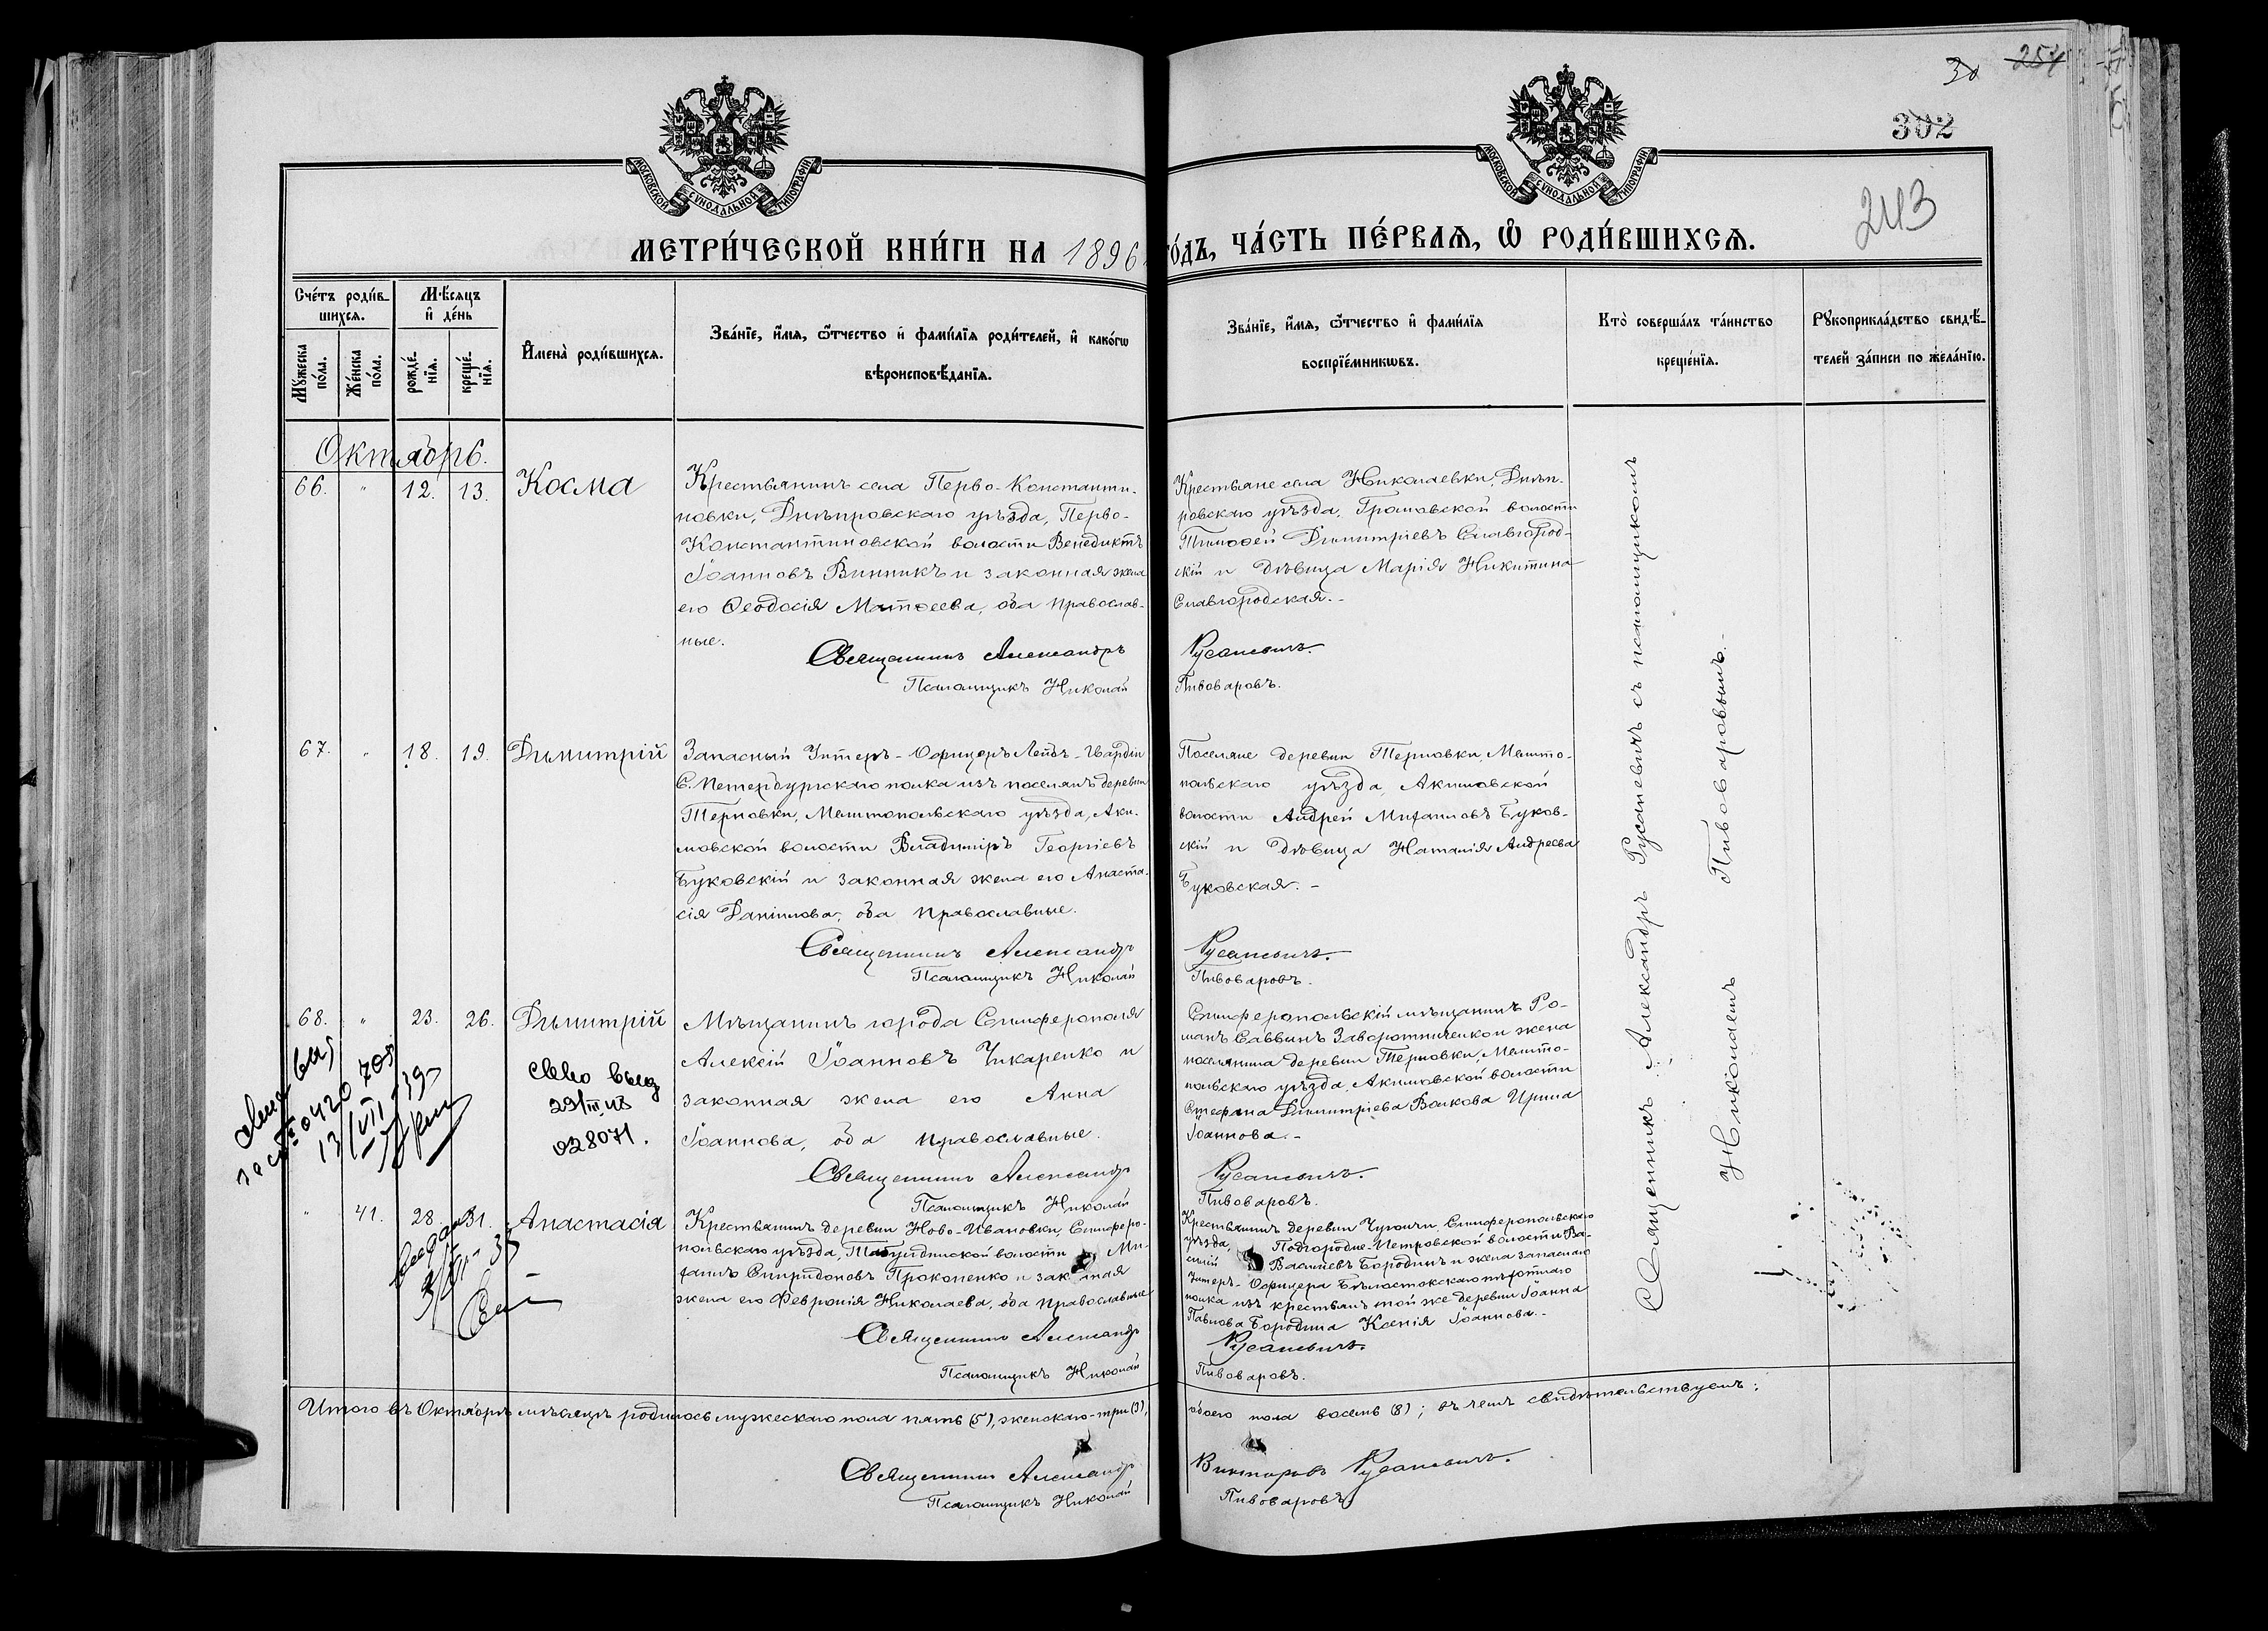 30 254
302
243
МОСКОВСКОЙ СУНОДАЛЬНОЙ ТИПОГРАФІИ
МОСКОВСКОЙ СУНОДАЛЬНОЙ ТИПОГРАФІИ
МЕТРИ́ЧЕСКОЙ КНИ́ГИ НА 1896 ГО́ДЪ, ЧА́СТЬ ПЕ́РВАЯ, Ѽ РОДИ́ВШИХСЯ.
Сче́тъ роди́в-
шихся.
Мꙋ́жеска по́ла.
Же́нска по́ла.
Мѣ́сяцъ и҆ де́нь
рожде́-нїя.
креще́-нїя.
И҆мена̀ роди́вшихся.
Зва́нїе, и҆́мя, ѻ҆́тчество и҆ фами́лїя роди́телей, и҆ како́гѡ
вѣроисповѣ́данїя.
Зва́нїе, и҆́мя, ѻ҆́тчество и҆ фами́лїя
воспрїе́мникѡвъ.
Кто̀ соверша́лъ та́инство
креще́нїя.
Рꙋкоприкла́дство свидѣ́-
телей за́писи по жела́нїю.
Октябрь.
66. " 12. 13. Косма
Крестьянинъ села Перво-Константи-
новки, Днѣпровскаго уѣзда, Перво-
Константиновской волости Венедиктъ
Іоанновъ Винникъ и законная жена
его Ѳеодосія Матѳеева, оба православ-
ные.
Священникъ Александръ
Псаломщикъ Николай
Крестьяне села Николаевки, Днѣп-
ровскаго уѣзда, Громовской волости
Тимоѳей Димитріевъ Славгород-
скій и дѣвица Марія Никитина
Славгородская.-
Русаневичъ.
Пивоваровъ.
67. " 18. 19. Димитрій
Запасный Унтеръ-Офицеръ Лейбъ-Гвардіи
С. Петербургскаго полка изъ поселянъ деревни
Терновки, Мелитопольскаго уѣзда, Аки-
мовской волости Владиміръ Георгіевъ
Буковскій и законная жена его Анаста-
сія Даніилова, оба православные.
Священникъ Александръ
Псаломщикъ Николай
Поселяне деревни Терновки, Мелито-
польскаго уѣзда, Акимовской
волости Андрей Михаиловъ Буков-
скій и дѣвица Наталія Андреева
Буковская.-
Русаневичъ.
Пивоваровъ.
68. " 23. 26. Димитрій
Мѣщанинъ города Симферополя
Алексій Іоанновъ Чикаренко и
законная жена его Анна
Іоаннова, оба православные.
Священникъ Александръ
Псаломщикъ Николай
28071.
Симферопольскій мѣщанинъ Ро-
манъ Саввинъ Заворотниченко и жена
поселянина деревни Терновки, Мелито-
польскаго уѣзда, Акимовской волости
Стефана Димитріева Волкова Ирина
Іоаннова.-
Русаневичъ.
Пивоваровъ.
" 41. 28. 31. Анастасія
Крестьянинъ деревни Ново-Ивановки, Симферо-
польскаго уѣзда, Табулдинской волости Ми-
хаилъ Спиридоновъ Прокопенко и законная
жена его Февронія Николаева, оба православные
Священникъ Александръ
Псаломщикъ Николай
Крестьянинъ деревни Симферопольскаго
уѣзда, Подгородне-Петровской волости Ва-
силій Васильевъ Бородинъ и жена запаснаго
Унтеръ-Офицера Бѣлостокскаго пѣхотнаго
полка изъ крестьянъ той же деревни Іоанна
Павлова Бородина Ксенія Іоаннова.-
Русаневичъ.
Пивоваровъ.
Священникъ Александръ Русаневичъ съ псаломщикомъ
Николаемъ Пивоваровымъ.
Итого въ Октябрѣ мѣсяцѣ родилось мужескаго пола пять (5), женскаго-три (3), обоего пола восемь (8); въ чемъ свидѣтельствуемъ:
Священникъ Александръ Викторовъ Русаневичъ.
Псаломщикъ Николай Пивоваровъ